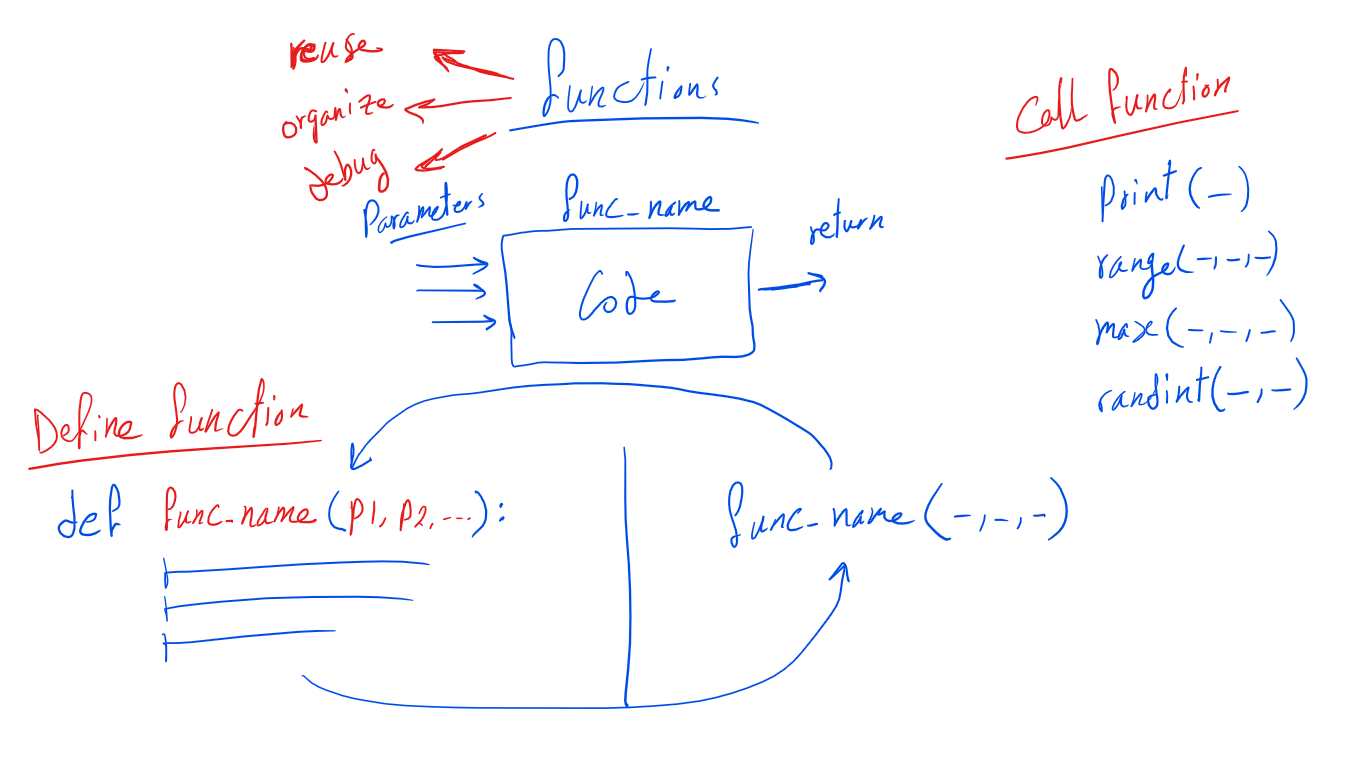 functions
reuse
organize
debug
Parameters
func_name
Code
return
Call function
Print(_)
range(-,-,-)
max(-,-,-)
randint(-,-)
Define function
def func_name(p1, p2, ...):
func_name(-,-,-)